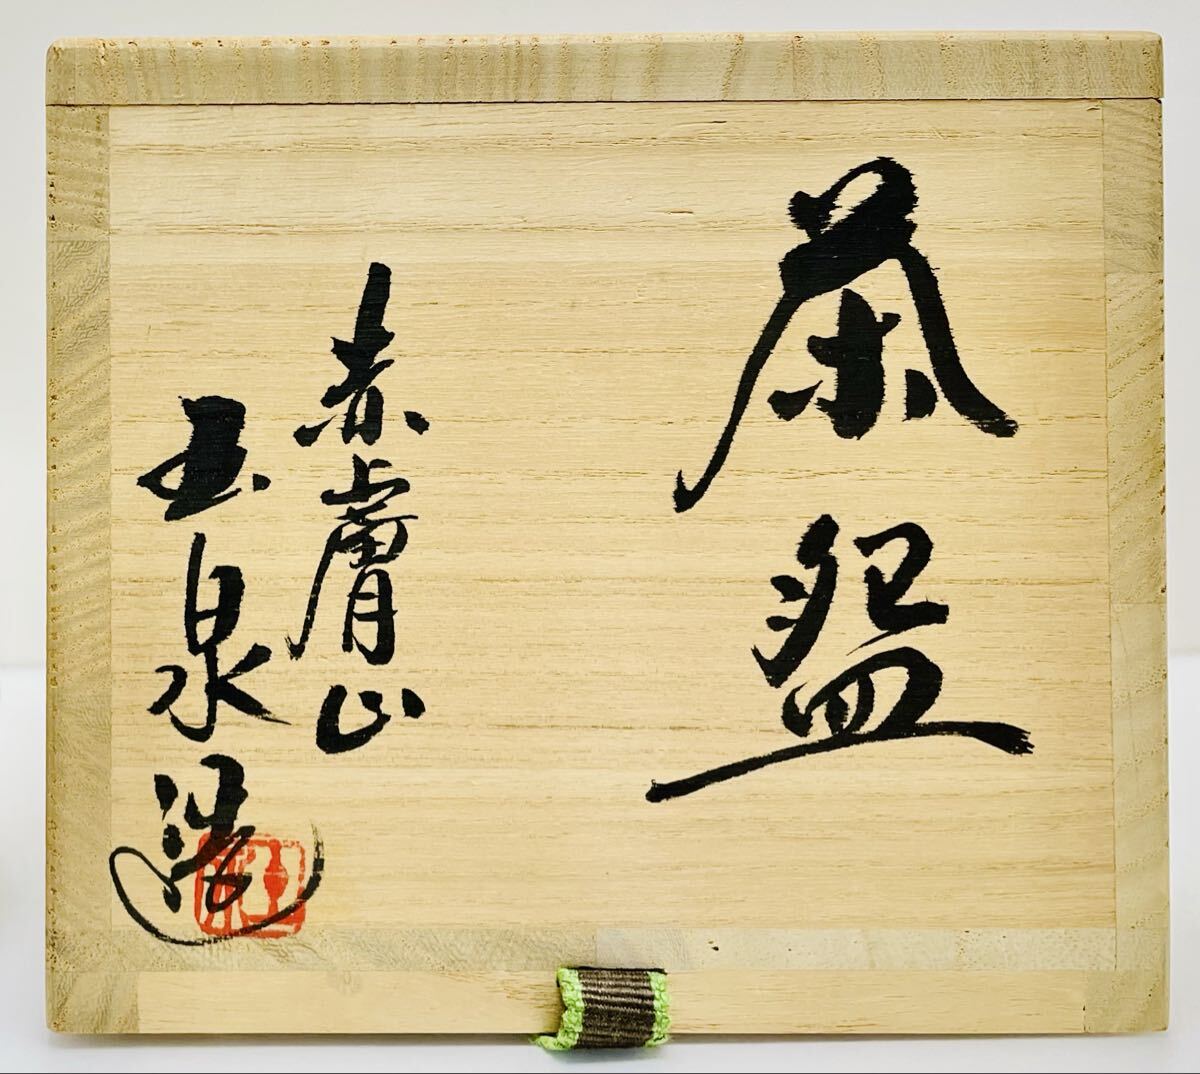 茶盌
赤膚山
玉泉造